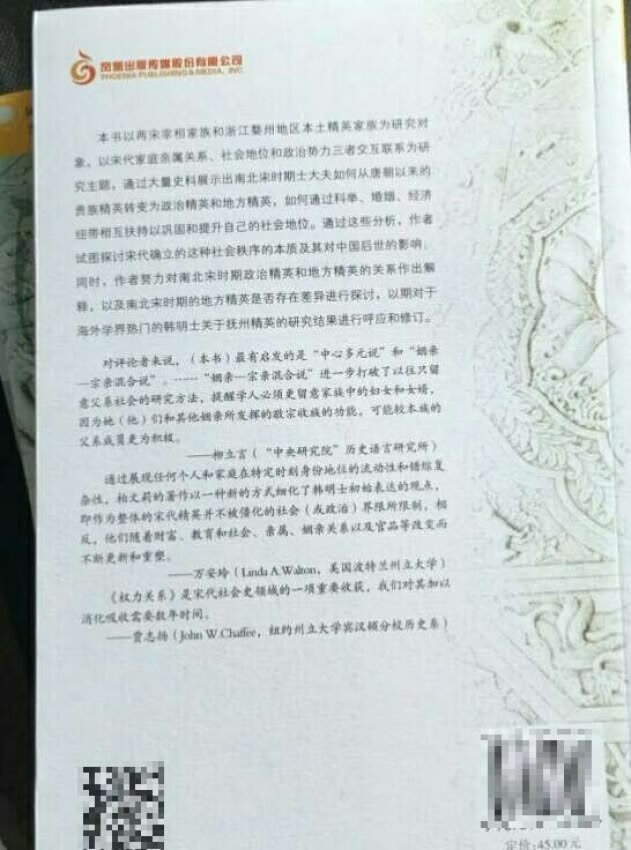 凤凰出版传媒股份有限公司
PHOENIX PUBLISHING & MEDIA, INC.
本书以两宋宰相家族和浙江婺州地区本土精英家族为研究对
象，以宋代家庭亲属关系、社会地位和政治势力三者交互联系为研
究主题，通过大量史料展示出南北宋时期士大夫如何从唐朝以来的
贵族精英转变为政治精英和地方精英，如何通过科举、婚姻、经济
纽带相互扶持以巩固和提升自己的社会地位。通过这些分析，作者
试图探讨宋代确立的这种社会秩序的本质及其对中国后世的影响。
同时，作者努力对南北宋时期政治精英和地方精英的关系作出解
释，以及南北宋时期的地方精英是否存在差异进行探讨，以期对于
海外学界热门的韩明士关于抚州精英的研究结果进行呼应和修订。
对评论者来说，（本书）最有启发的是“中心多元说”和“姻亲
—宗亲混合说”。……“姻亲—宗亲混合说”进一步打破了以往只留
意父系社会的研究方法，提醒学人必须更留意家族中的妇女和女婿，
因为她（他）们和其他姻亲所发挥的敬宗收族的功能，可能较本族的
父系成员更为积极。
——柳立言（“中央研究院”历史语言研究所）
通过展现任何个人和家庭在特定时刻身份地位的流动性和错综复
杂性，柏文莉的著作以一种新的方式细化了韩明士初始表达的观点，
即作为整体的宋代精英并不被僵化的社会（或政治）界限所限制，相
反，他们随着财富、教育和社会、亲属、姻亲关系以及官品等改变而
不断更新和重塑。
——万安玲（Linda A.Walton，美国波特兰州立大学）
《权力关系》是宋代社会史领域的一项重要收获，我们对其加以
消化吸收需要数年时间。
——贾志扬（John W.Chaffee，纽约州立大学宾汉顿分校历史系）
定价:45.00元